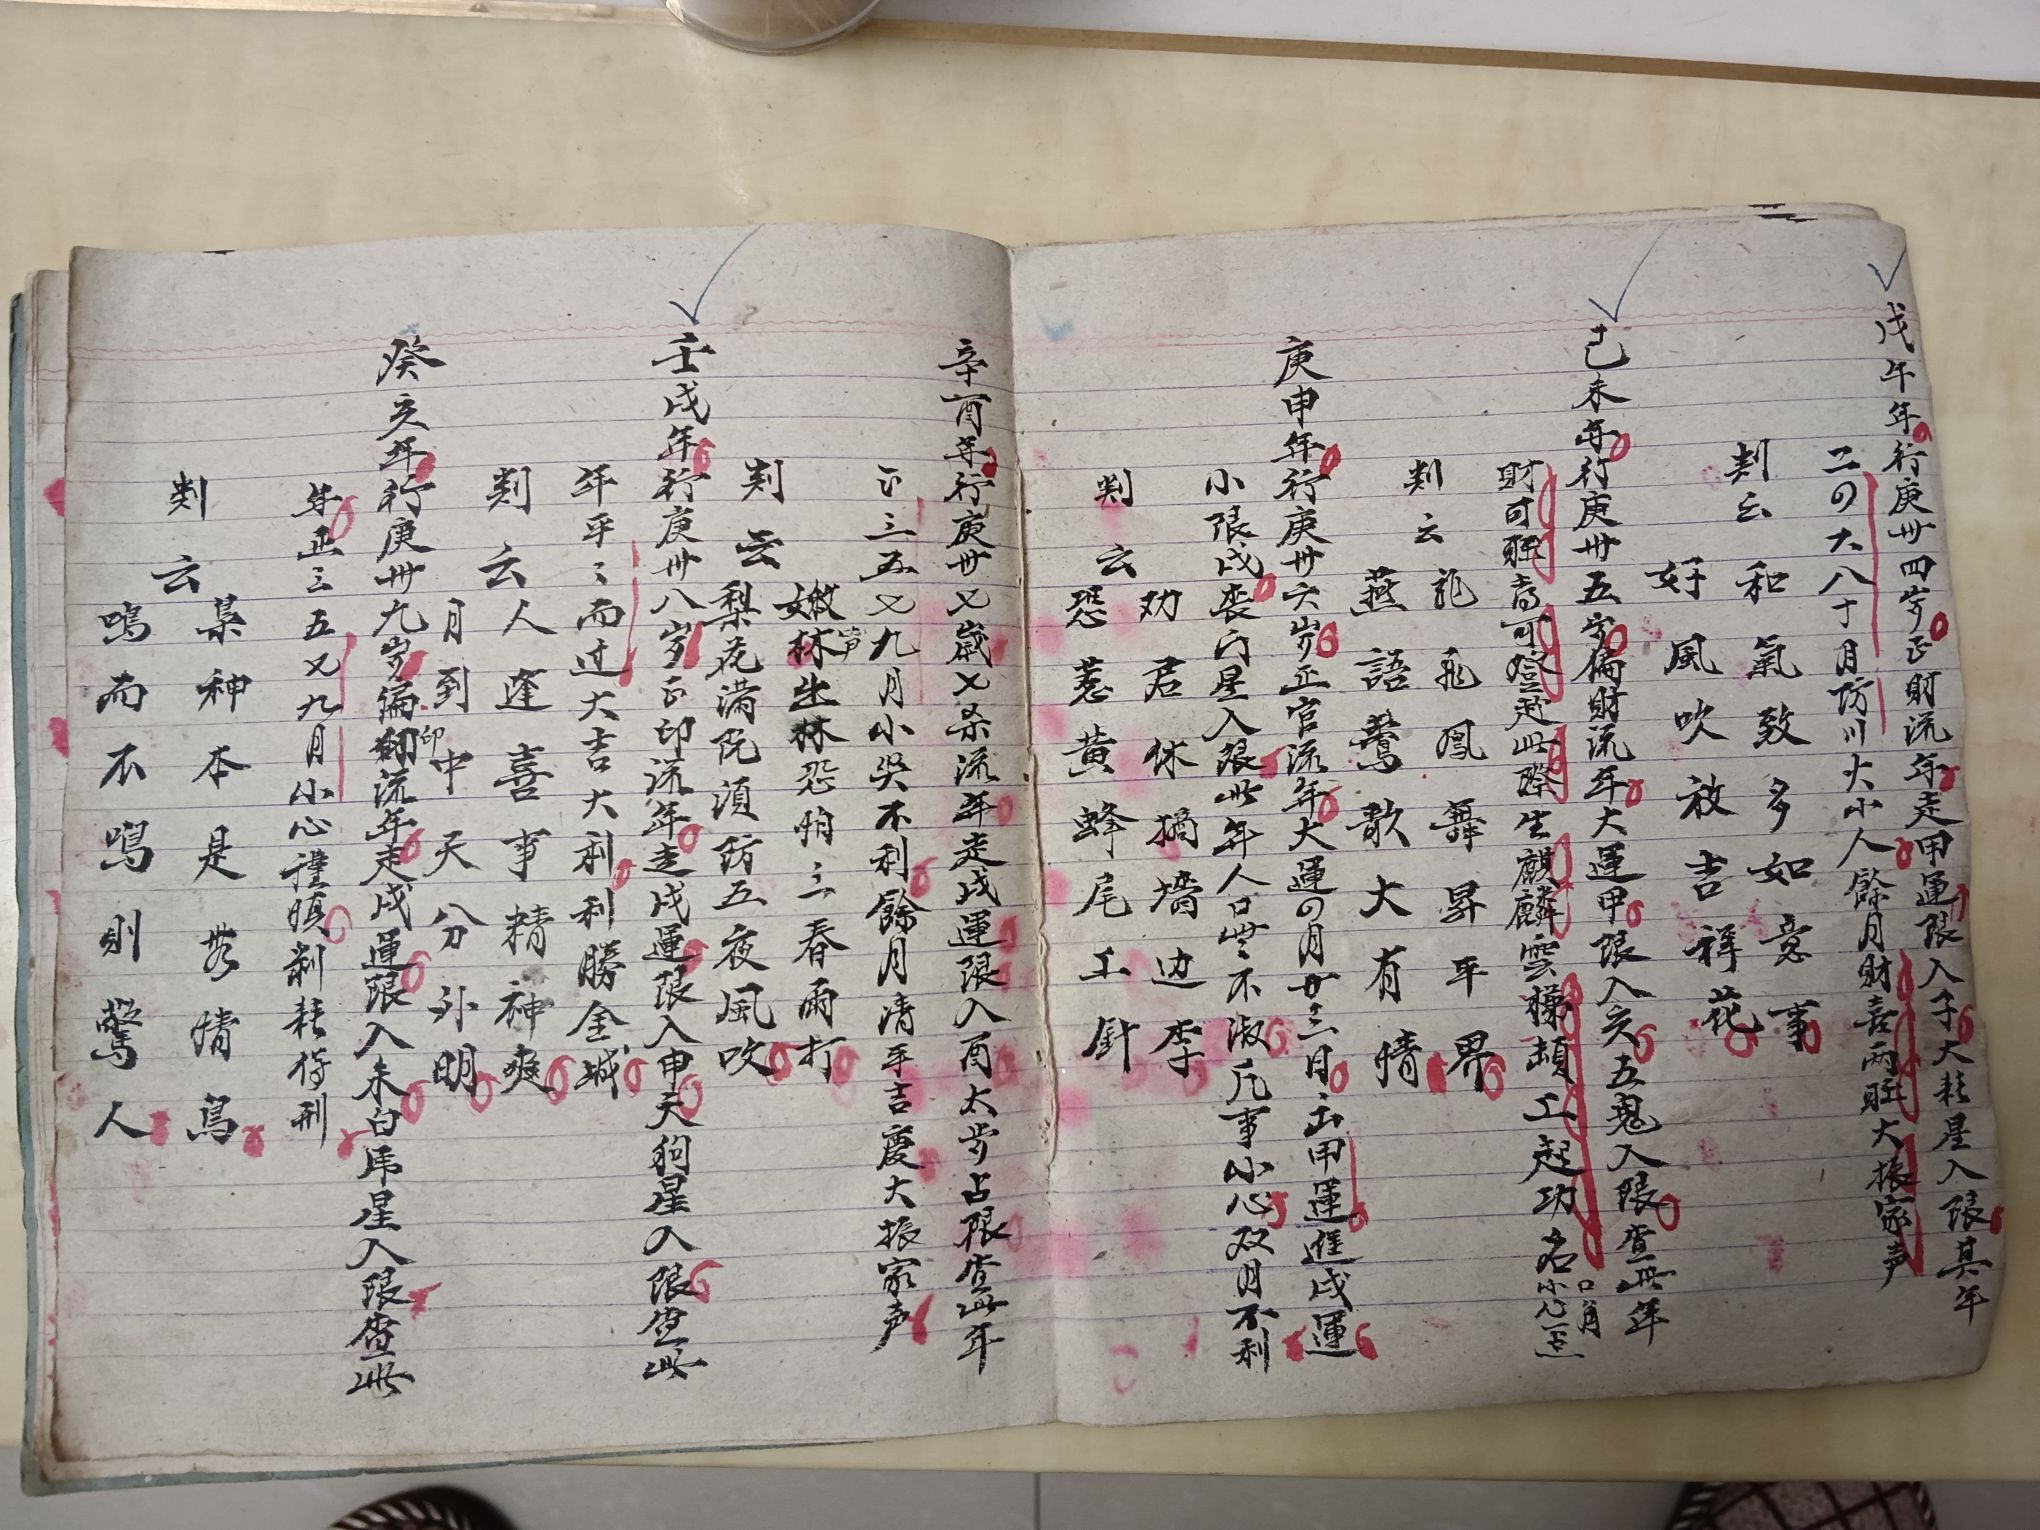 戊午年行庚卅四岁正財流年走甲運限入子大耗星入限其年
二四六八十月防川大小人餘月財喜兩旺大振家声
判云
和氣致多如意事
好風吹放吉祥花
己未年行庚卅五岁偏財流年大運甲限入亥五鬼入限查此年
財可旺高可登趁此際生麒麟雲梯頓工起功名
口角小心一点
判云
龍飛鳳舞昇平界
燕語鶯歌大有情
庚申年行庚卅六岁正官流年大運四月廿三日出甲運進戌運
小限戌丧门星入限此年人口坐不淑凡事小心双月不利
判云
劝君休摘墻边李
恐惹黄蜂尾上針
辛酉年行庚卅乂歲乂杀流年走戌運限入酉太岁占限查此年
正三五乂九月小哭不利餘月清平吉慶大振家声
判云
嫩林生林恐怕三春雨打
梨花满院須防五夜風吹
壬戌年行庚卅八岁正印流年走戌運限入申天狗星入限查此
年平〻而过大吉大利利勝金城
判云
人逢喜事精神爽
月到中天分外明
癸亥年行庚卅九岁偏印流年走戌運限入未白虎星入限查此
年正三五乂九月小心謹慎剝耗得刑
判云
枭神本是无情鳥
鳴而不鳴鳴則驚人